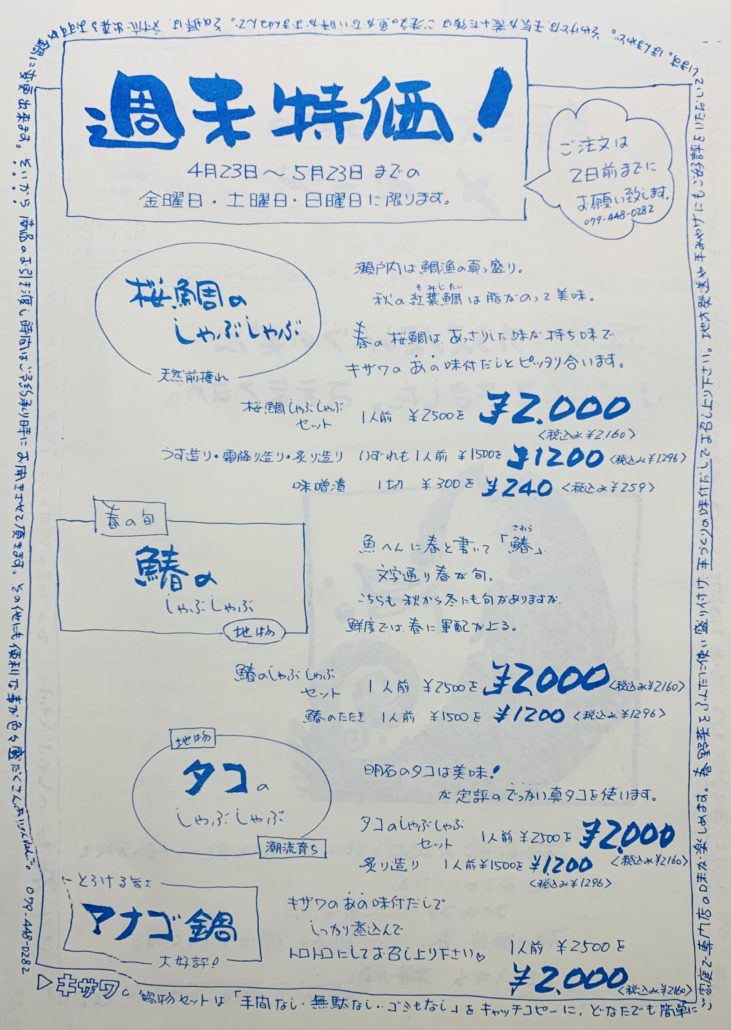 週末特価!
4月23日〜5月23日までの
金曜日・土曜日・日曜日に限ります。
ご注文は
2日前までに
お願い致します。
079-448-0282
桜鯛の
しゃぶしゃぶ
天然前獲れ
瀬戸内は鯛漁の真っ盛り。
もみじだい
秋の紅葉鯛は脂がのって美味。
春の桜鯛は、あっさりした味が持ち味で
キザワのあの味付だしとピッタリ合います。
桜鯛しゃぶしゃぶ
セット 1人前 ¥2500を ¥2.000
<税込み¥2160>
うす造り・霜降り造り・炙り造り いずれも1人前 ¥1500を ¥1200 <税込み¥1296>
味噌漬 1切 ¥300を ¥240 <税込み¥259>
春の旬
鰆の
しゃぶしゃぶ
地物
さわら
魚へんに春と書いて「鰆」
文字通り春が旬。
こちらも秋から冬にも旬がありますが、
鮮度では春に軍配が上る。
鰆のしゃぶしゃぶ
セット 1人前 ¥2500を ¥2000 <税込み¥2160>
鰆のたたき 1人前 ¥1500を ¥1200 <税込み¥1296>
地物
タコの
しゃぶしゃぶ
潮流育ち
明石のタコは美味!
が定評のでっかい真タコを使います。
タコのしゃぶしゃぶ
セット 1人前 ¥2500を ¥2.000
<税込み¥2160>
炙り造り 1人前¥1500を ¥1.200
<税込み¥1296>
とろける旨さ
アナゴ鍋
大好評!
キザワのあの味付だしで
しっかり煮込んで
トロトロにしてお召し上り下さい♡
1人前 ¥2500を
¥2.000 <税込み¥2160>
▷キザワの鍋物セットは「手間なし・無駄なし・ゴミもなし」をキャッチコピーに、どなたでも簡単に
ご家庭で専門店の味が楽しめます。春野菜をふんだんに使い盛り付け、手づくりの味付だしでお召し上り下さい。地方発送や手みやげにもご好評をいただいて
います。
鍋に変更出来ます。
商品のお引き渡し時間はご予約承り時にお聞きさせて頂きます。その他にも便利で
079-448-0282